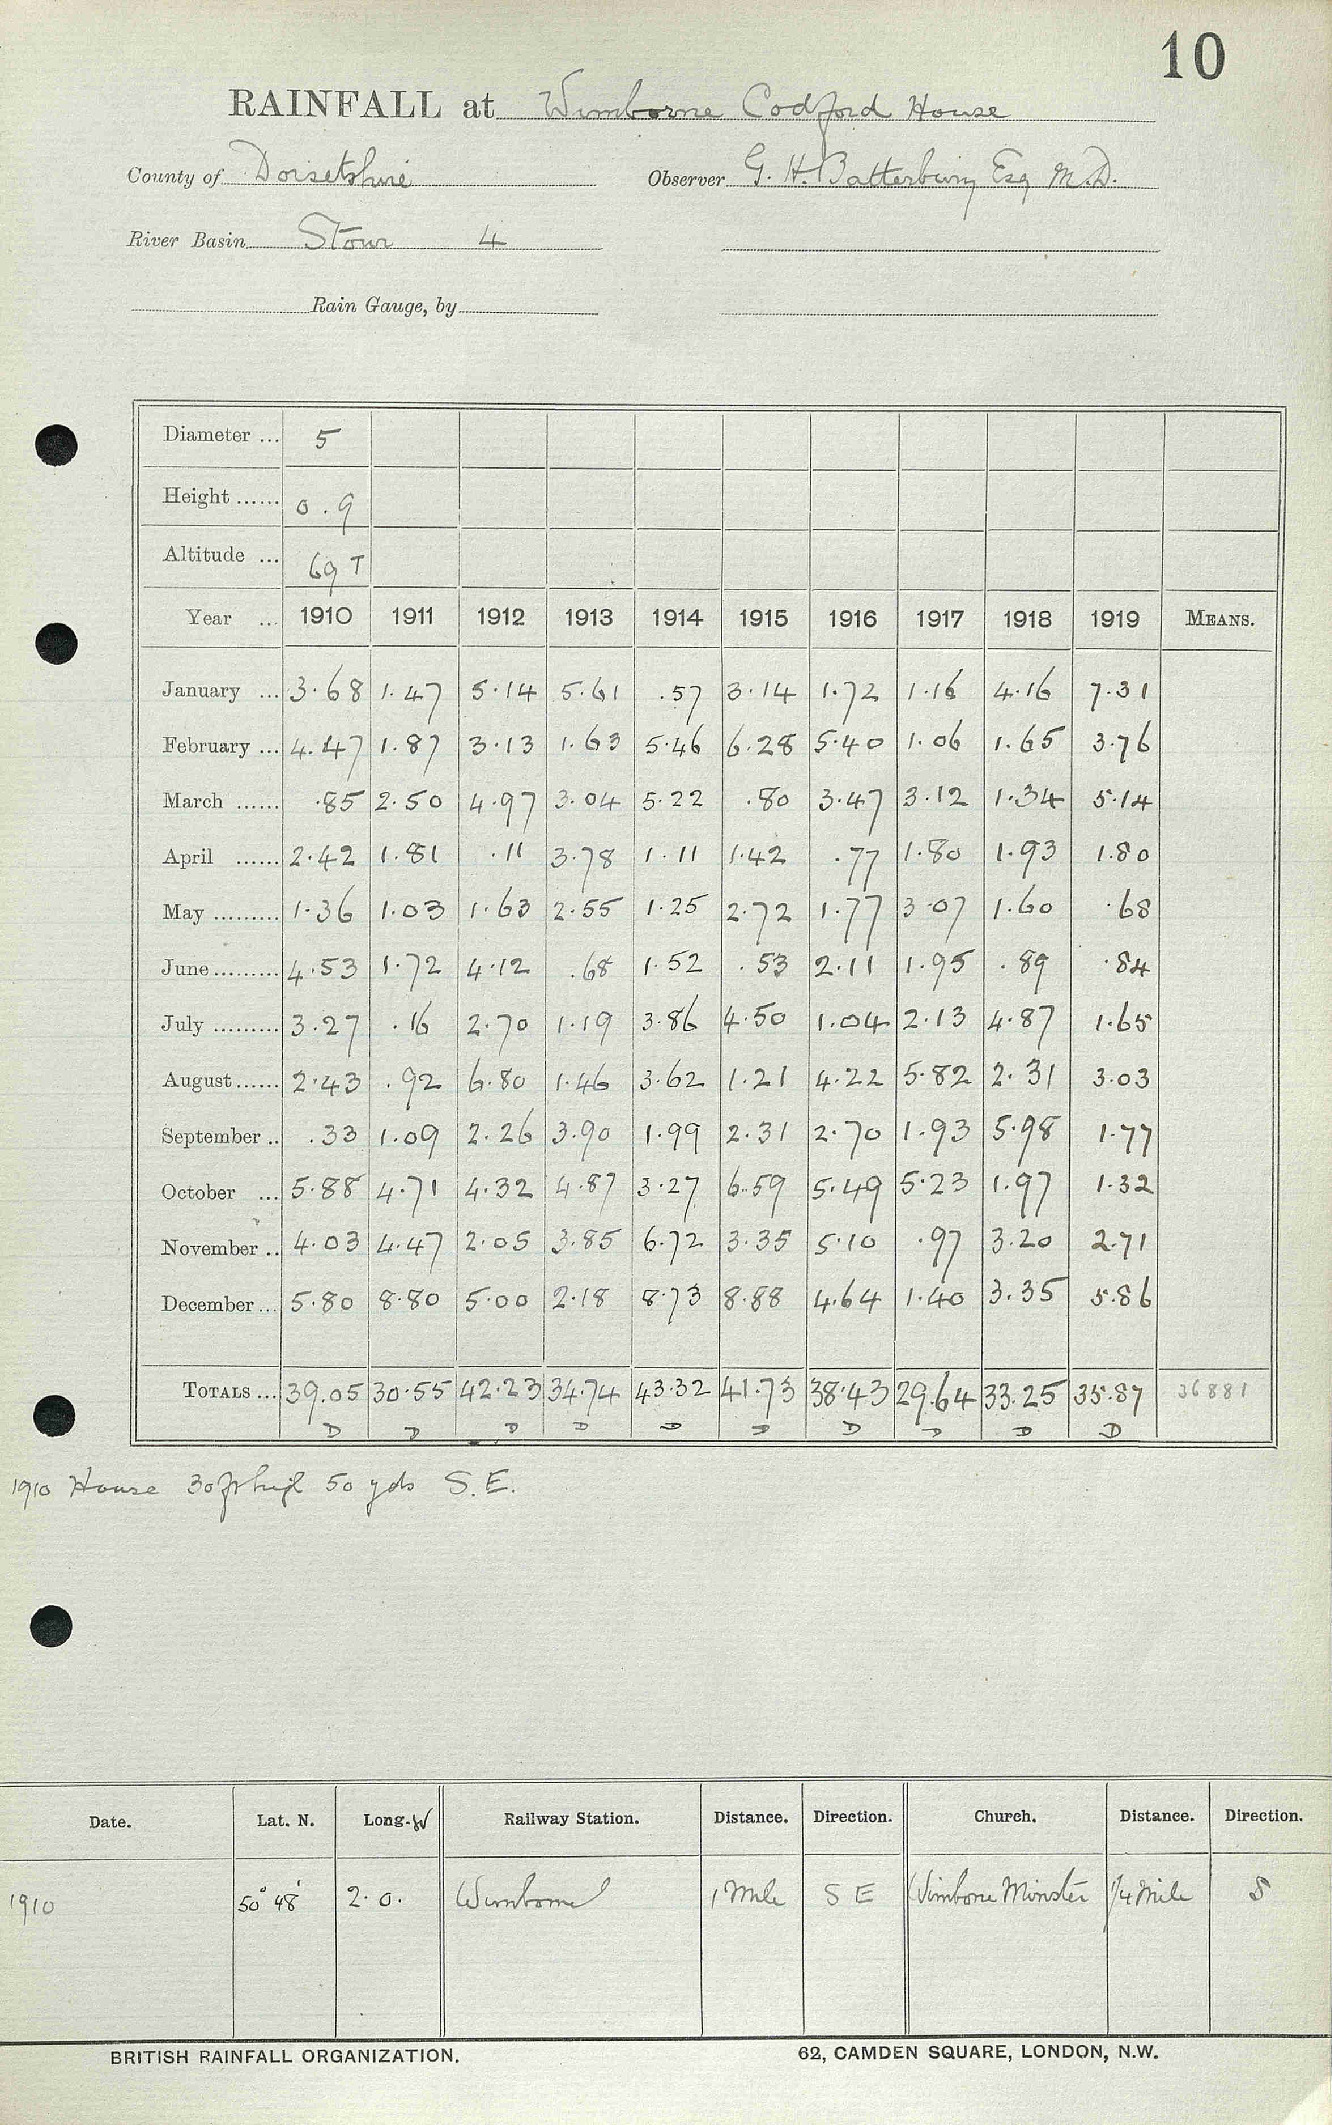 10
RAINFALL at Wimborne Codford House
County of Dorsetshire Observer G. H. Batterbury Esq M.D.
River Basin Stour 4
Rain Gauge, by
Diameter ... 5
Height ...... 0.9
Altitude ... 69 T
Year ... 1910 1911 1912 1913 1914 1915 1916 1917 1918 1919 MEANS.
January ... 3.68 1.47 5.14 5.61 .57 3.14 1.72 1.16 4.16 7.31
February ... 4.47 1.87 3.13 1.63 5.46 6.28 5.40 1.06 1.65 3.76
March ...... .85 2.50 4.97 3.04 5.22 .80 3.47 3.12 1.34 5.14
April ...... 2.42 1.81 .11 3.78 1.11 1.42 .77 1.80 1.93 1.80
May ......... 1.36 1.03 1.63 2.55 1.25 2.72 1.77 3.07 1.60 .68
June ......... 4.53 1.72 4.12 .68 1.52 .53 2.11 1.95 .89 .84
July ......... 3.27 .16 2.70 1.19 3.86 4.50 1.04 2.13 4.87 1.65
August ...... 2.43 .92 6.80 1.46 3.62 1.21 4.22 5.82 2.31 3.03
September .. .33 1.09 2.26 3.90 1.99 2.31 2.70 1.93 5.98 1.77
October ... 5.88 4.71 4.32 4.87 3.27 6.59 5.49 5.23 1.97 1.32
November .. 4.03 4.47 2.05 3.85 6.72 3.35 5.10 .97 3.20 2.71
December ... 5.80 8.80 5.00 2.18 8.73 8.88 4.64 1.40 3.35 5.86
TOTALS ... 39.05 30.55 42.23 34.74 43.32 41.73 38.43 29.64 33.25 35.87 36881
D D D D D D D D D D
1910 House 30ft high 50 yds S.E.
Date. Lat. N. Long. W Railway Station. Distance. Direction. Church. Distance. Direction.
1910 50° 48' 2.0. Wimborne 1 Mile S E Wimborne Minster 1/4 Mile S
BRITISH RAINFALL ORGANIZATION. 62, CAMDEN SQUARE, LONDON, N.W.